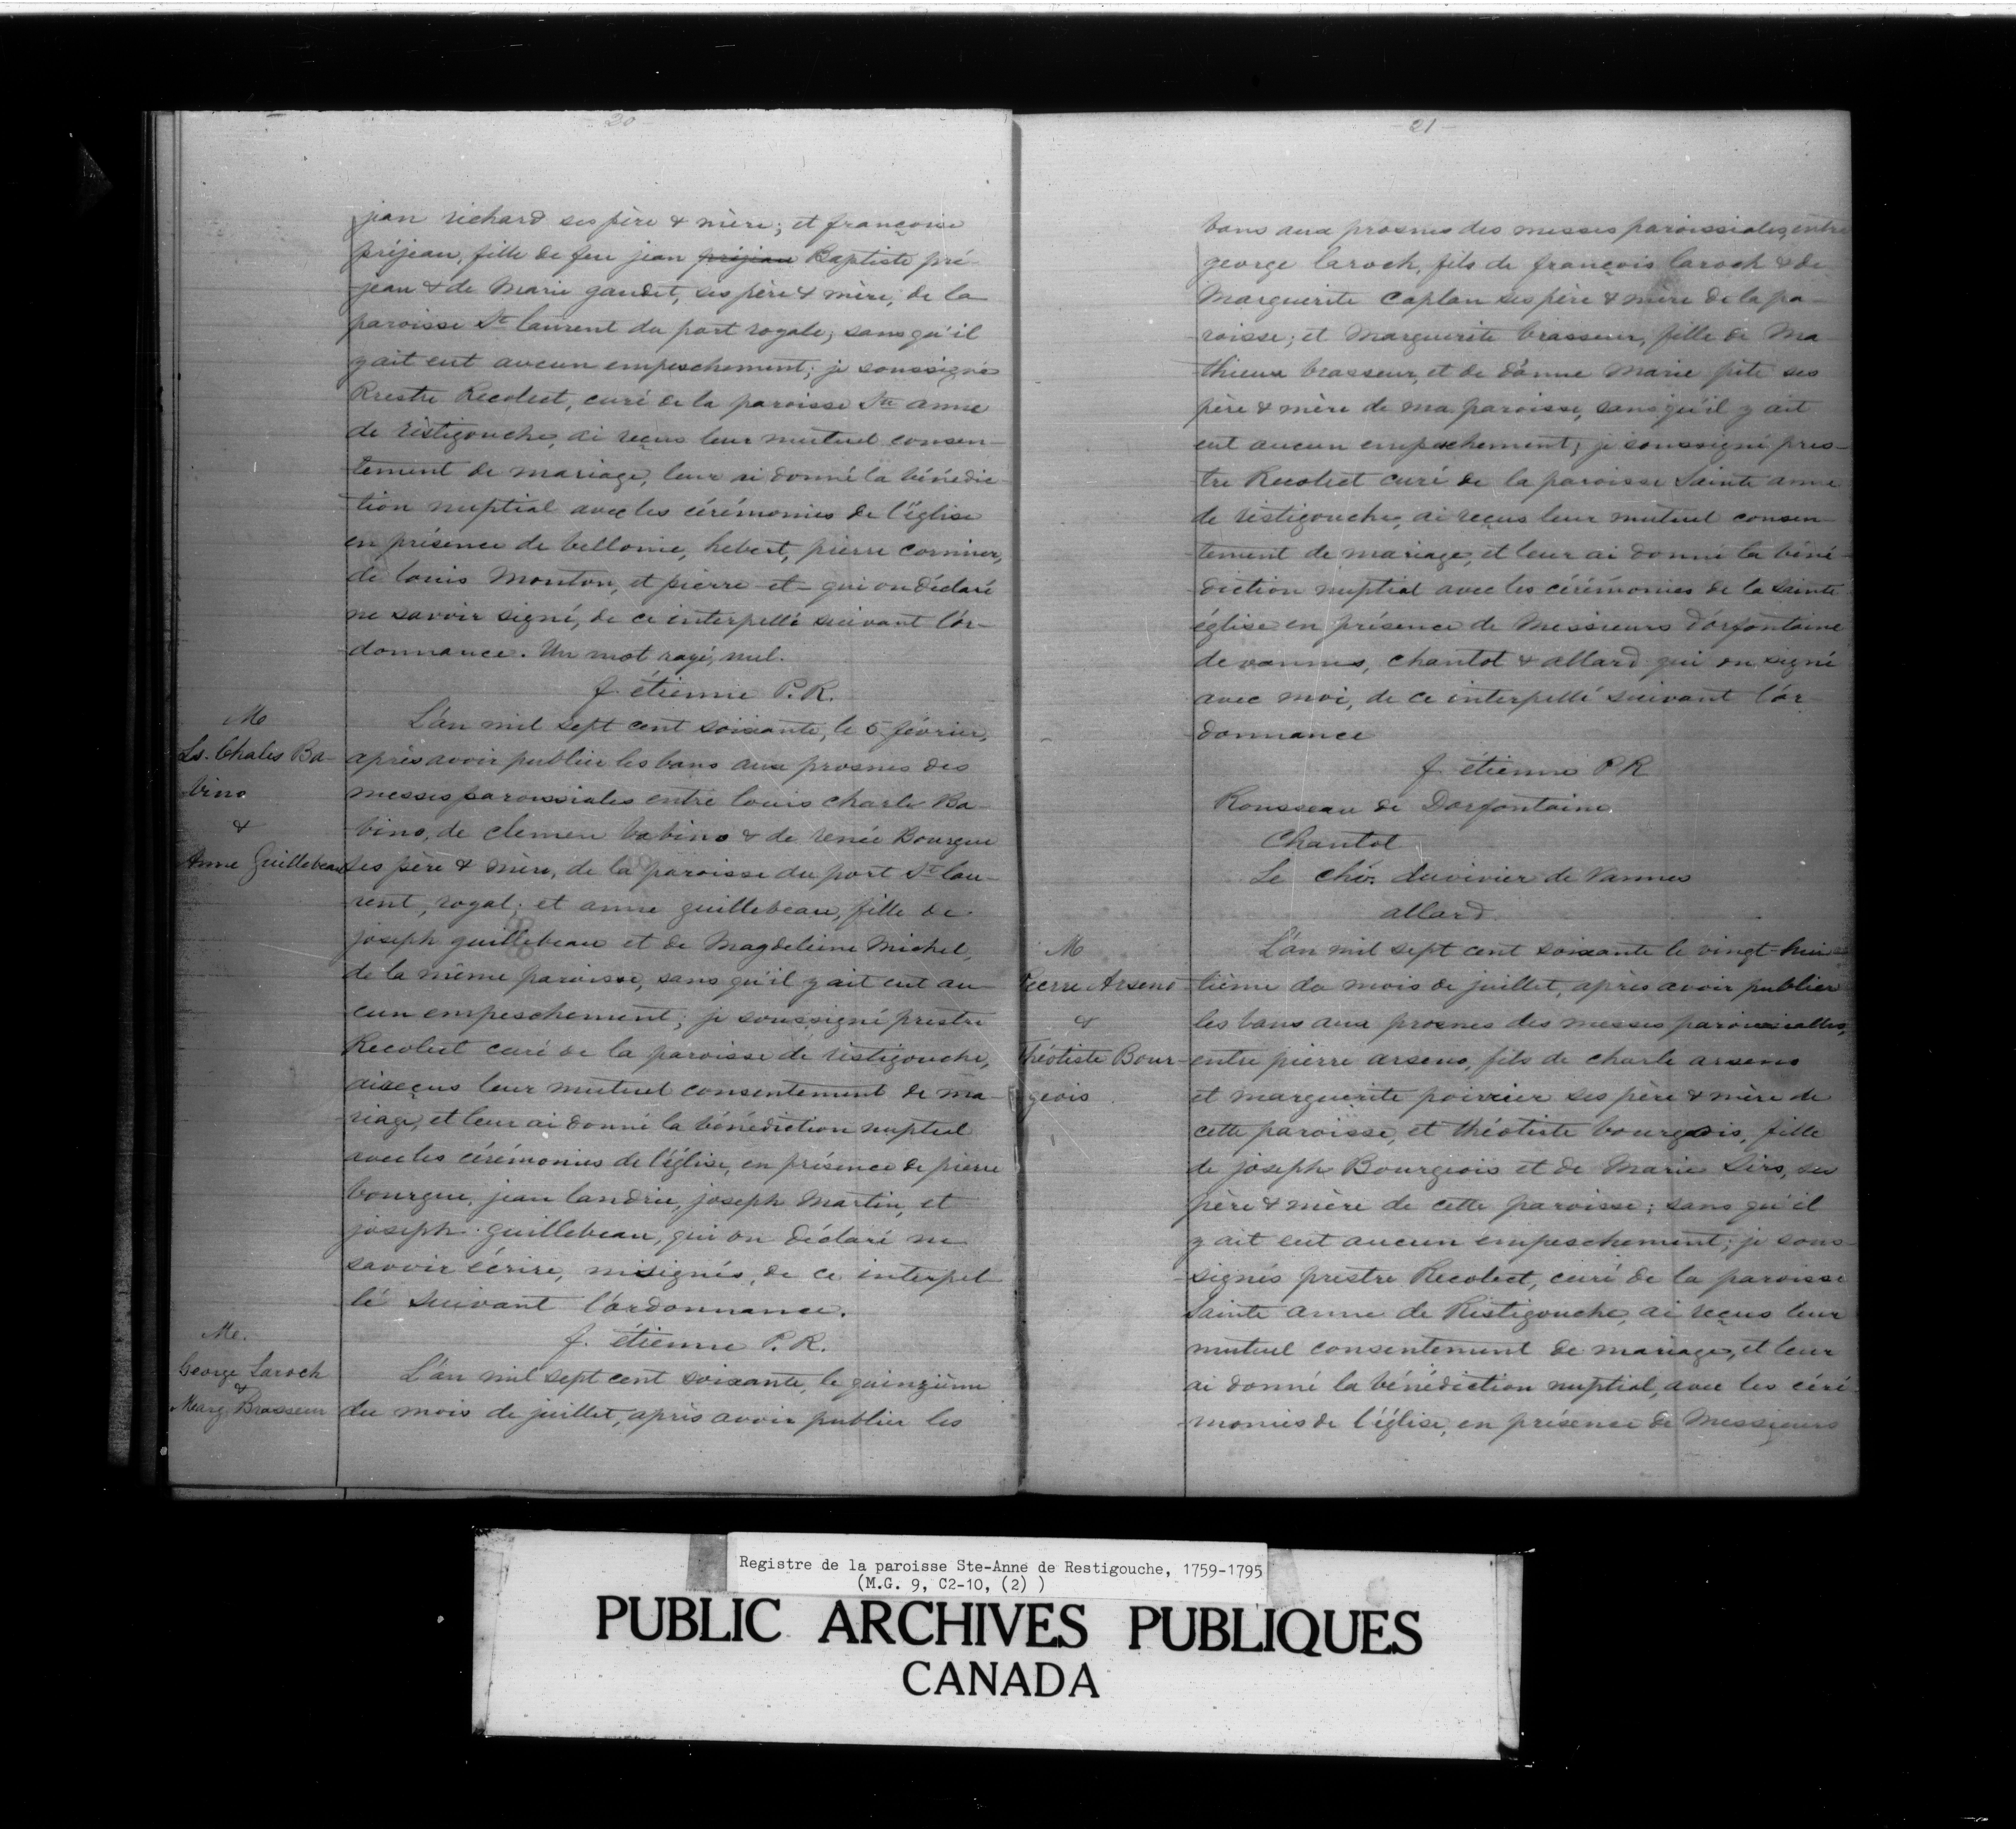 20
jean richard ses père & mère; et françoise
préjean, fille de feu jean préjean Baptiste pré-
jean & de Marie gaudet, ses père & mère, de la
paroisse St laurent du port royale, sans qu'il
y ait eut aucun empeschement; je soussigné
Prestre Recolect, curé de la paroisse Ste anne
de ristigouche, ai reçus leur mutuel consen-
tement de mariage, leur ai donné la bénédic
tion nuptial avec les cérémonies de l'église
en présence de bellonie, hebert, pierre
de louis Monton, et pierre et qui on déclaré
ne savoir signé, de ce interpellé suivant l'or-
donnance. Un mot rayé, nul.
f. étienne P.R.
Me
Ls. Chales Ba-
bino
&
Anne Guillebeau
L'an mil sept cent soixante, le 5 février,
après avoir publier les bans aux prosnes des
messes paroissiales entre louis charle Ba-
bino, de clemen babino & de renée Bourgue
ses père & mère, de la paroisse du port St lau-
rent, royal; et anne guillebeau, fille de
joseph guillebeau et de Magdeleine Michel,
de la même paroisse, sans qu'il y ait eut au-
cun empeschement; je soussigné prestre
Recolect curé de la paroisse de ristigouche,
ai reçus leur mutuel consentement de ma-
riage, et leur ai donné la bénédiction nuptial
avec les cérémonies de l'église, en présence de pierre
bourgue, jean landrie, joseph Martin, et
joseph guillebeau, qui on déclaré ne
savoir écrire, ni signés, de ce interpel
lé suivant l'ordonnance.
f. étienne P.R.
Me.
George Laroch
&
Marg. Brasseur
L'an mil sept cent soixante, le quinzième
du mois de juillet, après avoir publier les
21
bans aux prosnes des messes paroissiales, entre
george laroch, fils de françois laroch & de
Marguerite Caplan ses père & mère de la pa-
roisse; et Marguerite brasseur, fille de Ma
thieux brasseur, et de d'anne Marie pite ses
père & mère de ma paroisse, sans qu'il y ait
eut aucun empeschement; je soussigné pres-
tre Recolect curé de la paroisse Sainte anne
de ristigouche, ai reçus leur mutuel consen-
tement de mariage, et leur ai donné la béné-
diction nuptial avec les cérémonies de la sainte
église en présence de Messieurs d'orfontaine
de vannes, chantot & allard qui on signé
avec moi, de ce interpellé suivant l'or-
donnance
f. étienne P.R
Rousseau de Dorfontaine.
Chantot
Le chév. duvivier de Vannes
allard.
M
Pierre Arseno
&
Théotiste Bour-
geois
L'an mil sept cent soixante le vingt-hui
tième du mois de juillet, après avoir publier
les bans aux prosnes des messes paroissialles,
entre pierre arseno, fils de charle arseno
et marguerite poirier ses père & mère de
cette paroisse, et théotiste bourgois, fille
de joseph Bourgeois et de Marie Sirs, ses
père & mère de cette paroisse; sans qu'il
y ait eut aucun empeschement; je sous-
signés prestre Recolect, curé de la paroisse
Sainte anne de Ristigouche, ai reçus leur
mutuel consentement de mariage, et leur
ai donné la bénédiction nuptial, avec les céré
monies de l'église, en présence de Messieurs
Registre de la paroisse Ste-Anne de Restigouche, 1759-1795
(M.G. 9, C2-10, (2) )
PUBLIC ARCHIVES PUBLIQUES
CANADA